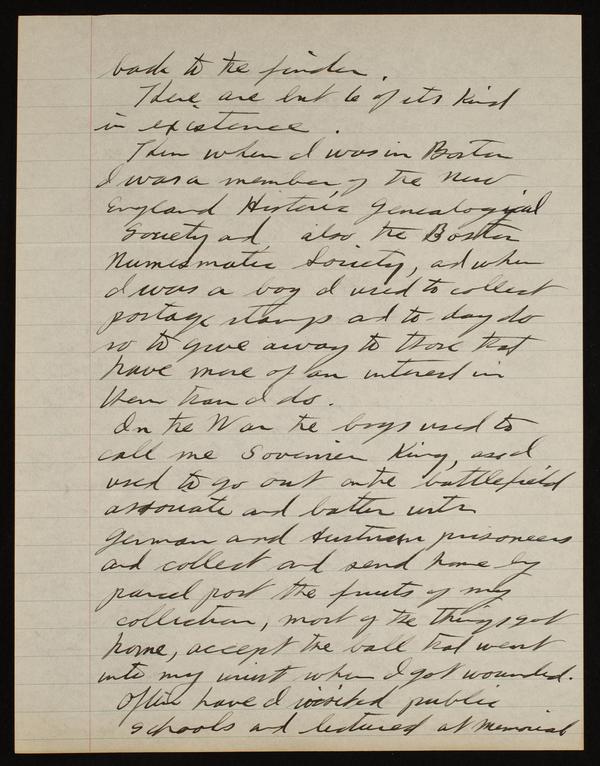 back to the finder.
There are but 6 of its kind
in existence.
Then when I was in Boston
I was a member of the New
England Historic Genealogical
Society ad, also the Boston
Numismatic Society, ad when
I was a boy I used to collect
postage stamps ad to day do
so to give away to those that
have more of an interest in
them than I do.
In the War the boys used to
call me Sovenier King, as I
used to go out on the battlefield
and barter with
German and Austrian prisoneers
and collect and send home by
parcel post the fruits of my
collection, most of the things got
home, accept the ball that went
into my wrist when I got wounded.
Often have I visited public
schools and lectured at Memorial